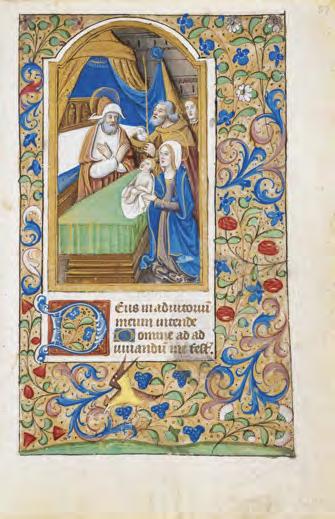 Deus in adiutoriū
meum intende
Domine ad ad
iuuandū me fest.